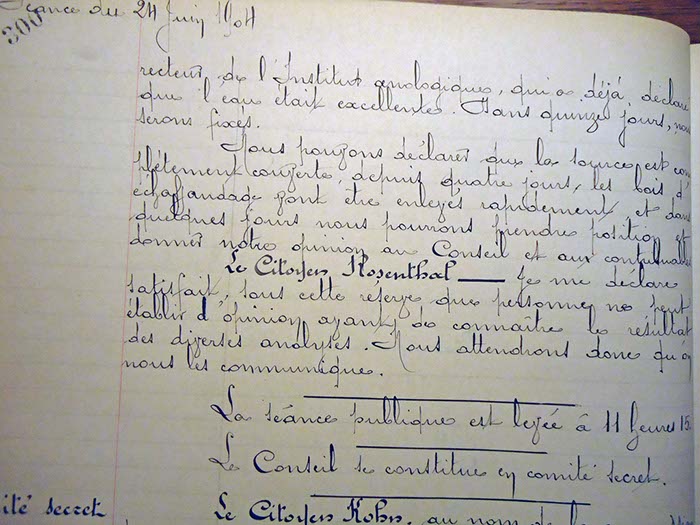 Séance du 24 Juin 1904
300
recteur de l'Institut œnologique, qui a déjà déclaré
que l'eau était excellente. Dans quinze jours, nous
serons fixés.
Nous pouvons déclarer que la source est com
plètement couverte depuis quatre jours, les bois d'
échaffaudage vont être enlevés rapidement et dans
quelques jours nous pourrons prendre position et
donner notre opinion au Conseil et aux contribuables
Le Citoyen Rosenthal — Je me déclare
satisfait, sous cette réserve que personne ne peut
établir d'opinion avant de connaître le résultat
des diverses analyses. Nous attendrons donc qu'on
nous les communique.
La séance publique est levée à 11 heures 15
Le Conseil se constitue en comité secret.
ité secret
Le Citoyen Kohn, au nom de la